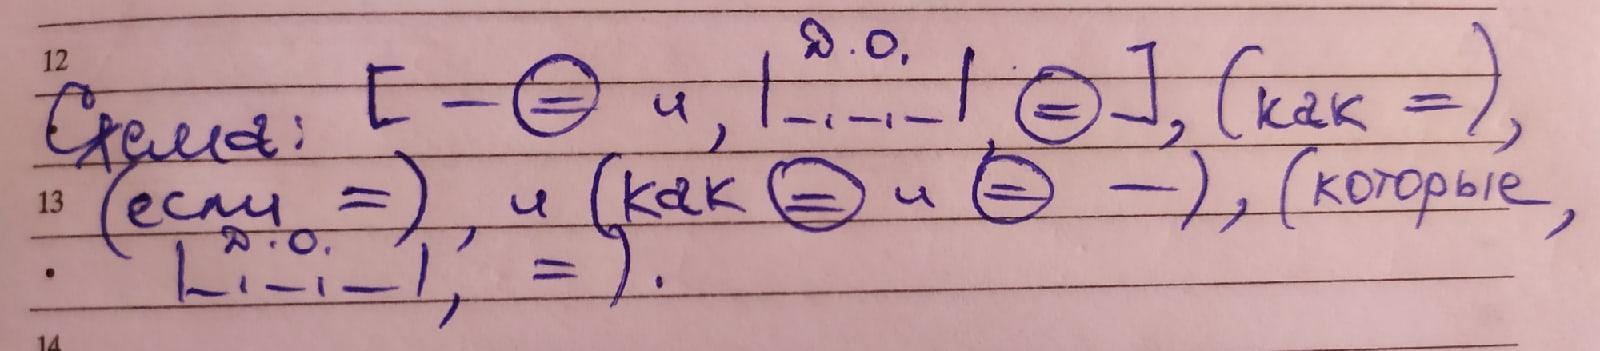 12
Схема: [ – = и, |Д.О. _._._|, = ], (как =),
13 (если =), и (как = и = –), (которые,
|Д.О. _._._|, =).
14